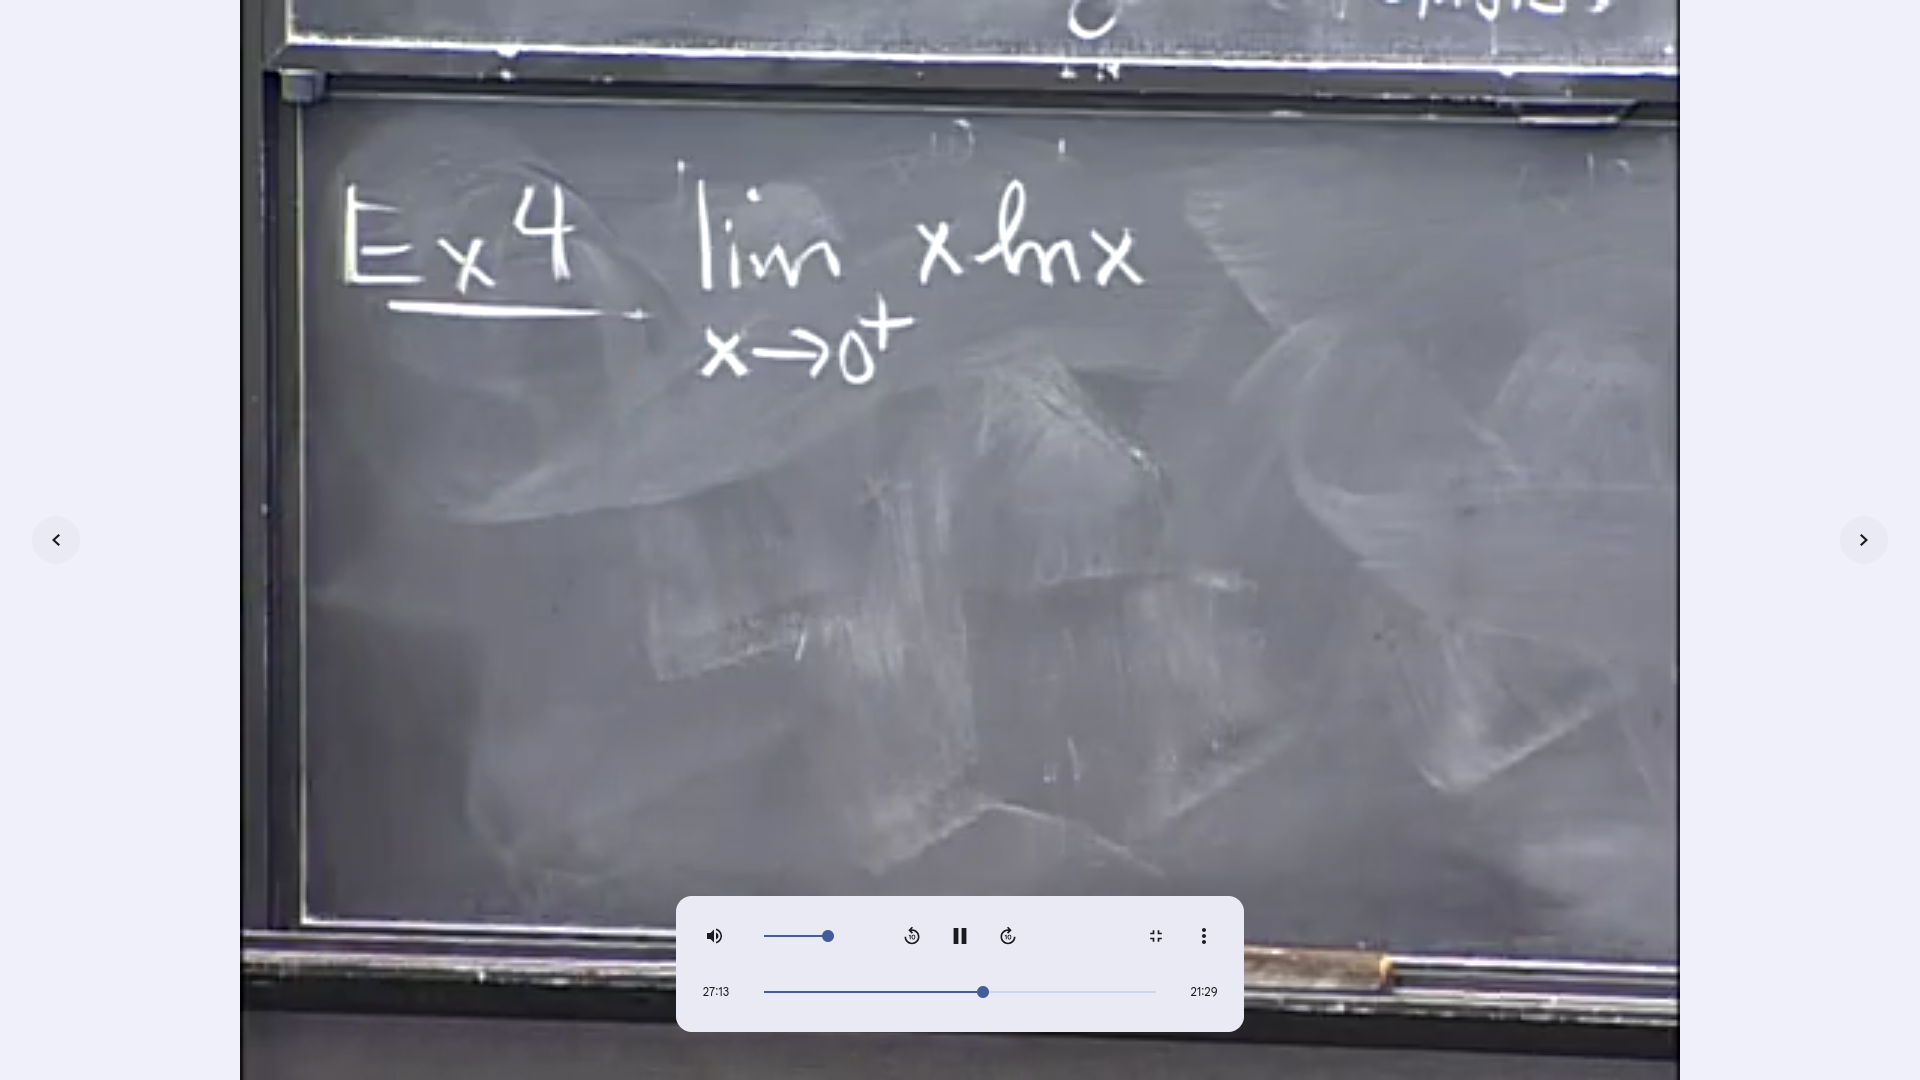 Ex 4 lim x ln x
x→0⁺
27:13 21:29